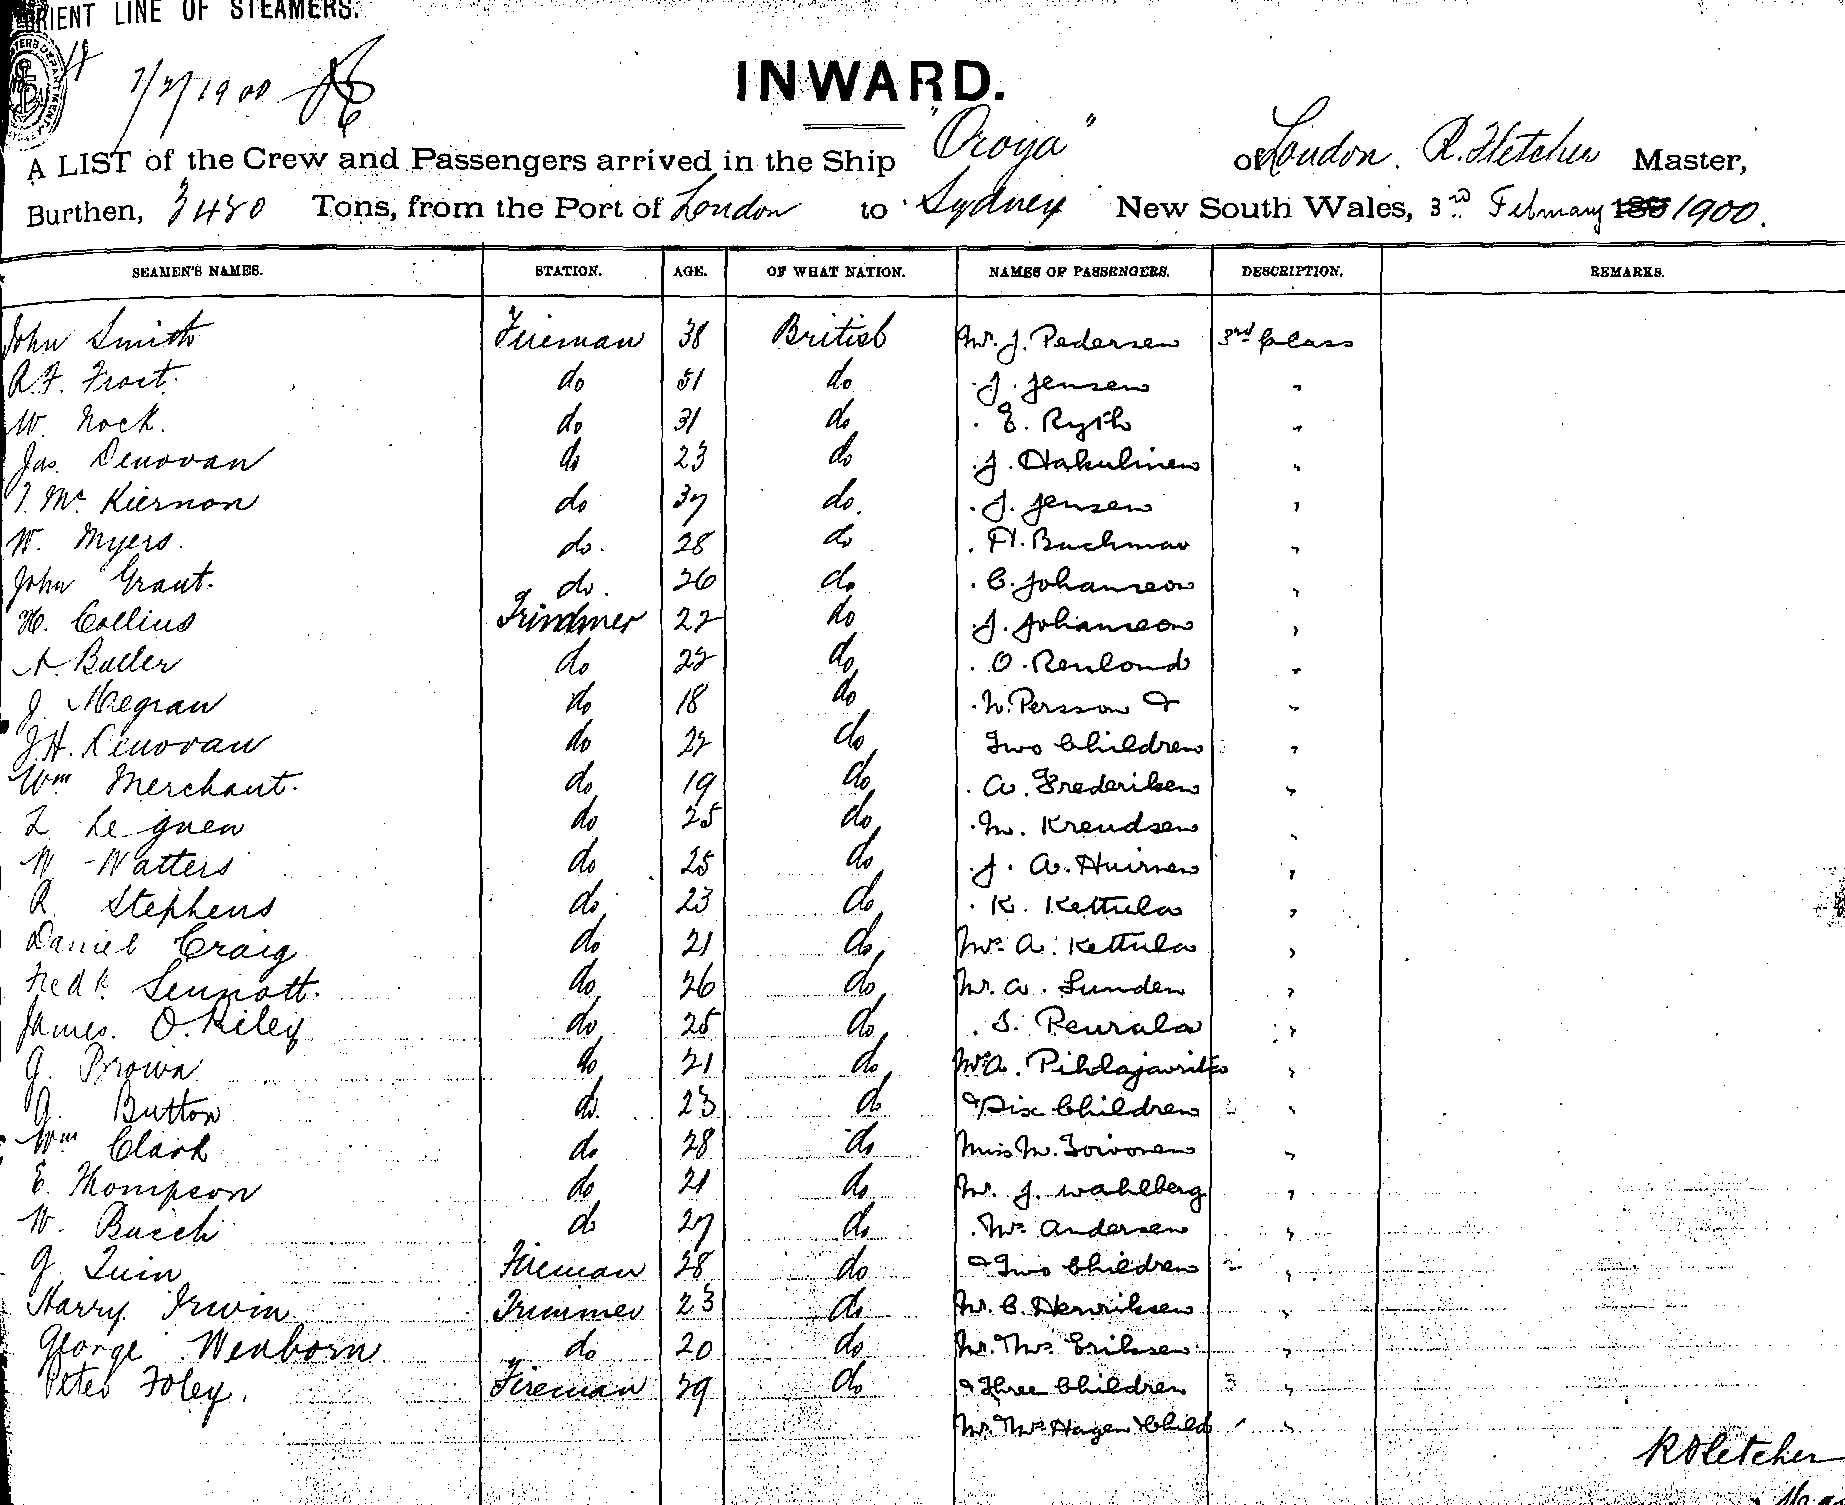 ORIENT LINE OF STEAMERS.
7/2/1900
INWARD.
A LIST of the Crew and Passengers arrived in the Ship "Oroya" of London. R. Fletcher Master,
Burthen, 3480 Tons, from the Port of London to Sydney New South Wales, 3rd February 1900.
SEAMEN'S NAMES. STATION. AGE. OF WHAT NATION. NAMES OF PASSENGERS. DESCRIPTION. REMARKS.
John Smith Fireman 38 British Mr. J. Pedersen 3rd Class
R.F. Frost. do 51 do . J. Jensen "
W. Nock. do 31 do . E. Ryth "
Jas. Denovan do 23 do . J. Hakulinen "
T. Mc Kiernon do 37 do. . J. Jensen "
W. Myers. do. 28 do . H. Buchman "
John Grant. do. 26 do . C. Johanson "
H. Collins Trimmer 22 do . J. Johanson "
A. Butler do 22 do . O. Renlond "
J. Megran do 18 do . N. Persson & "
J.H. Denovan do 22 do Two Children "
Wm Merchant. do 19 do . A. Frederiksen "
L Le guen do 25 do . M. Kreudsen "
W Watters do 25 do . J. A. Huirnen "
R Stephens do 23 do . K. Kettula "
Daniel Craig do 21 do Mrs A. Kettula "
Fredk. Sennott. do 26 do Mr. A. Lunden "
James. O. Riley do 25 do . S. Peurala "
G. Brown do 21 do Mrs A. "
G. Button do 23 do & Six Children "
Wm Clark do 28 do Miss M. Toivonen "
E. Thompson do 21 do Mr. J. Wahlberg "
W. do 27 do . Mrs Andersen "
J. Quin Fireman 28 do & Two Children 2 "
Harry Irwin Trimmer 23 do Mr. C. Henriksen "
George Wenborn do 20 do Mr. Mrs Eriksen "
Peter Foley. Fireman 29 do & Three Children 3 "
Mr. Mrs Hagen & Child "
R Fletcher